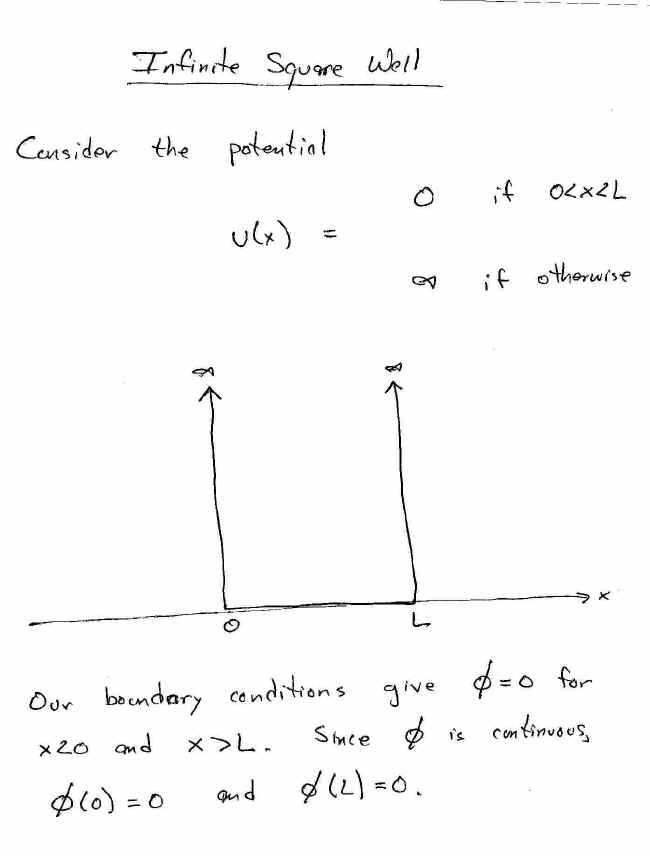 Infinite Square Well
Consider the potential
0 if 0<x<L
U(x) =
∞ if otherwise
∞ ∞
x
0 L
Our boundary conditions give ϕ=0 for
x<0 and x>L. Since ϕ is continuous,
ϕ(0)=0 and ϕ(L)=0.